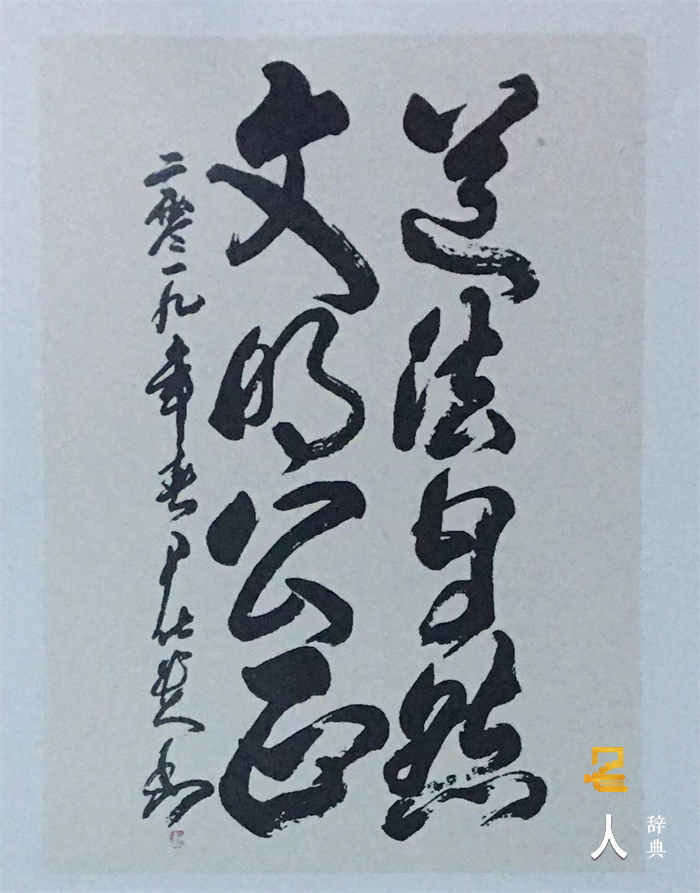 道法自然
文明公正
二零一九年春尹仕书
名人
辞典